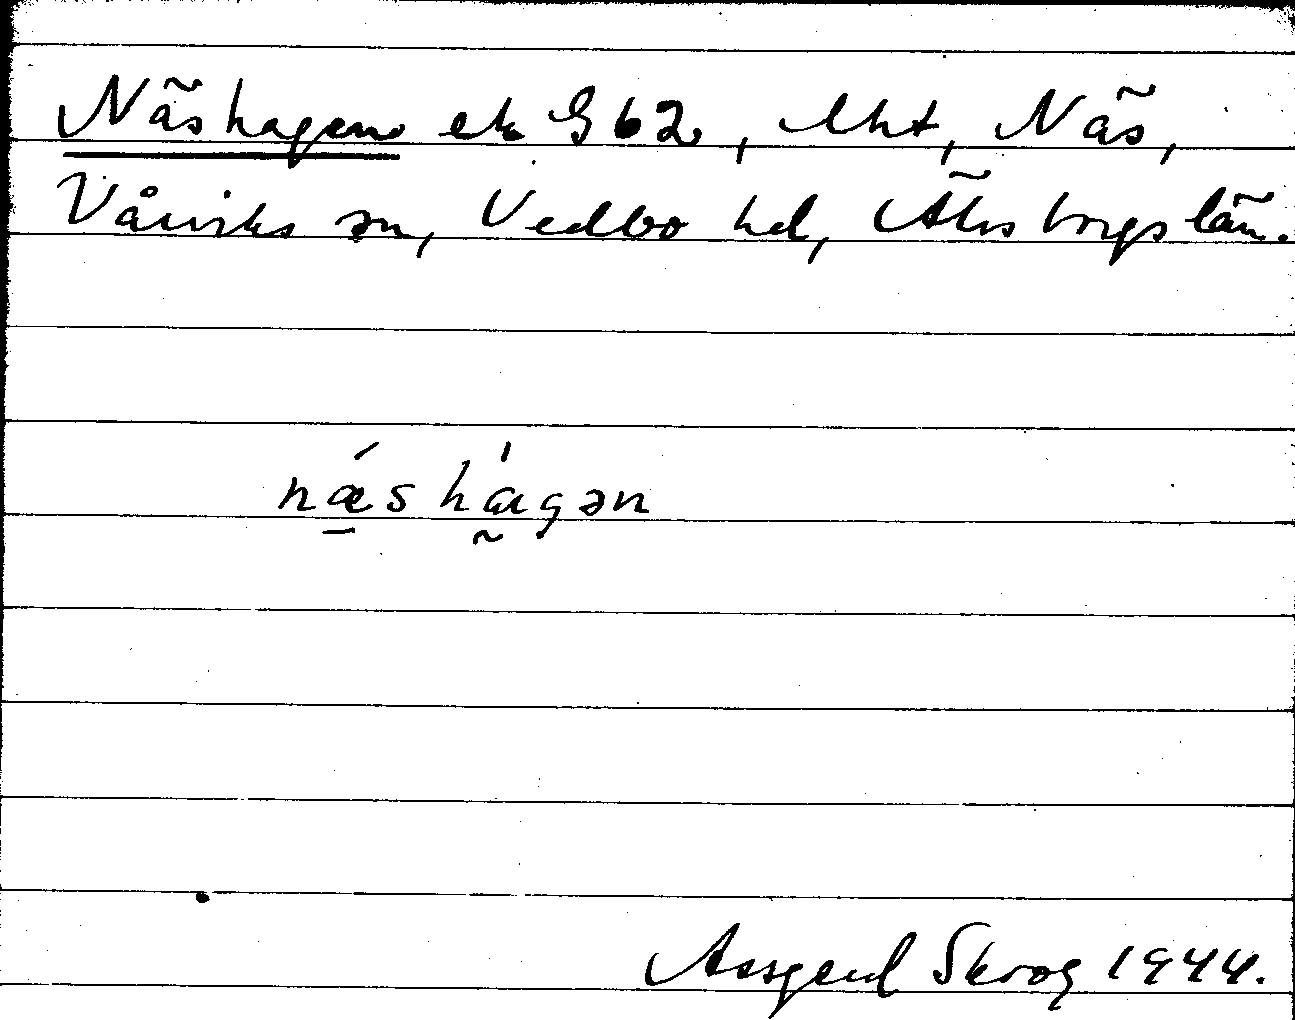 Näshagen ek G b 2, lht, Näs,
Vårviks sn, Vedbo hd, Älvsborgs län.
nǽ̱shа̰́gən
Assgerd Skrog 1944.